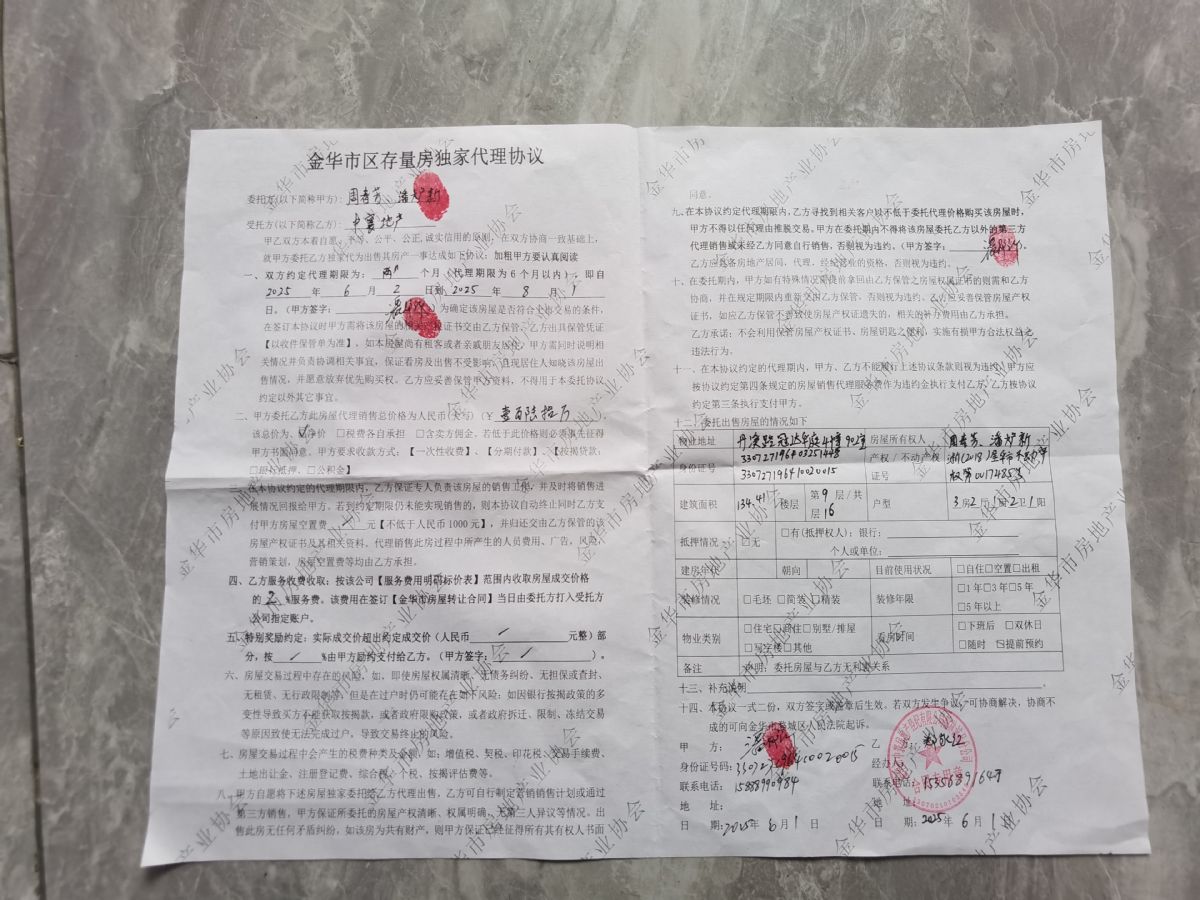 金华市区存量房独家代理协议
委托方(以下简称甲方): 周春芳 潘 新
受托方(以下简称乙方): 中寰地产
甲乙双方本着自愿、平等、公平、公正,诚实信用的原则,在双方协商一致基础上,
就甲方委托乙方独家代为出售其房产一事达成如下协议:加粗甲方要认真阅读
一、双方约定代理期限为: 两 个月(代理期限为6个月以内),即自
2025 年 6 月 2 日到 2025 年 8 月 1
日。(甲方签字: )为确定该房屋是否符合上协交易的条件,
在签订本协议时甲方需将该房屋的相关 证书交由乙方保管、乙方出具保管凭证
【以收件保管单为准】,如本房屋尚有租客或者亲戚朋友居住,甲方需同时说明相
关情况并负责协调相关事宜,保证看房及出售不受影响,且现居住人知晓该房屋出
售情况,并愿意放弃优先购买权。乙方应妥善保管甲方资料,不得用于本委托协议
约定以外其它事宜。
二、甲方委托乙方此房屋代理销售总价格为人民币(大写)(¥ 壹百陆拾万 ),
该总价为、☑净价 □税费各自承担 □含卖方佣金。若低于此价格则必须事先征得
甲方书面同意。甲方要求收款方式:【一次性收费】、【分期付款】、【按揭贷款:
□银行抵押、□公积金】
三、在本协议约定的代理期限内,乙方保证专人负责该房屋的销售工作,并及时将销售进
展情况回报给甲方。若到约定期限仍未能实现销售的,则本协议自动终止同时乙方支
付甲方房屋空置费 / 元【不低于人民币1000元】,并归还交由乙方保管的该
房屋产权证书及其相关资料。代理销售此房过程中所产生的人员费用、广告,风险,
营销策划,房屋空置费等均由乙方承担。
四、乙方服务收费收取:按该公司【服务费用明码标价表】范围内收取房屋成交价格
的 2 %服务费。该费用在签订【金华市房屋转让合同】当日由委托方打入受托方
公司指定账户。
五、特别奖励约定:实际成交价超出约定成交价(人民币 / 元整)部
分,按 / %由甲方励约支付给乙方。(甲方签字: / )。
六、房屋交易过程中存在的风险。如,即使房屋权属清晰、无债务纠纷、无担保或查封、
无租赁、无行政限制等,但是在过户时仍可能存在如下风险:如因银行按揭政策的多
变性导致买方不能获取按揭款,或者政府限购政策,或者政府拆迁、限制、冻结交易
等原因致使无法完成过户,导致交易终止的风险。
七、房屋交易过程中会产生的税费种类及金额,如:增值税、契税、印花税、交易手续费、
土地出让金、注册登记费、综合税、个税、按揭评估费等。
八、甲方自愿将下述房屋独家委托给乙方代理出售,乙方可自行制定营销销售计划或通过
第三方销售,甲方保证所委托的房屋产权清晰、权属明确、无第三人异议等情况。出
售此房无任何矛盾纠纷,如该房为共有财产,则甲方保证已经征得所有其有权人书面
同意。
九、在本协议约定代理期限内,乙方寻找到相关客户以不低于委托代理价格购买该房屋时,
甲方不得以任何理由推脱交易。甲方在委托期内不得将该房屋委托乙方以外的第三方
代理销售或未经乙方同意自行销售,否则视为违约。(甲方签字: )
乙方应遵各房地产居间、代理、经纪营业的资格,否则视为违约。
十、在委托期内,甲方如有特殊情况需提前拿回由乙方保管之房屋权属证书的则需和乙方
协商,并在规定期限内重新交由乙方保管,否则视为违约。乙方应妥善保管房屋产权
证书,如应乙方保管不善致使房屋产权证遗失的,相关的补办费用由乙方承担。
乙方承诺:不会利用保管房屋产权证书、房屋钥匙之便利,实施有损甲方合法权益之
违法行为。
十一、在本协议约定的代理期内,甲方、乙方不能履行上述协议条款则视为违约,甲方应
按协议约定第四条规定的房屋销售代理服务费作为违约金执行支付乙方,乙方按协议
约定第三条执行支付甲方。
十二、委托出售房屋的情况如下
物业地址 丹溪路冠达华庭4幢902室 房屋所有权人 周春芳、潘 新
身份证号 330727196403251448 330727196410020015 产权/不动产权证号 浙(2018)金华市不动产权第0017485号
建筑面积 134.41 楼层 第9层/共16层 户型 3房2厅1厨2卫1阳
抵押情况 □无 □有(抵押权人):银行:
个人或单位:
建房年代 朝向 目前使用状况 □自住□空置□出租
装修情况 □毛坯 □简装 □精装 装修年限 □1年□3年□5年 □5年以上
物业类别 □住宅□商住□别墅/排屋 □写字楼□其他 看房时间 □下班后 □双休日 □随时 ☑提前预约
备注 说明:委托房屋与乙方无利害关系
十三、补充说明
十四、本协议一式二份,双方签字或盖章后生效。若双方发生争议,可协商解决,协商不
成的可向金华市婺城区人民法院起诉。
甲 方: 乙
身份证号码:330727196410020015 经办人:
联系电话:15888990984 联系电话:
地 址: 地 址:
日 期:2025年6月1日 日 期:2025年6月1
金华市房地产业协会